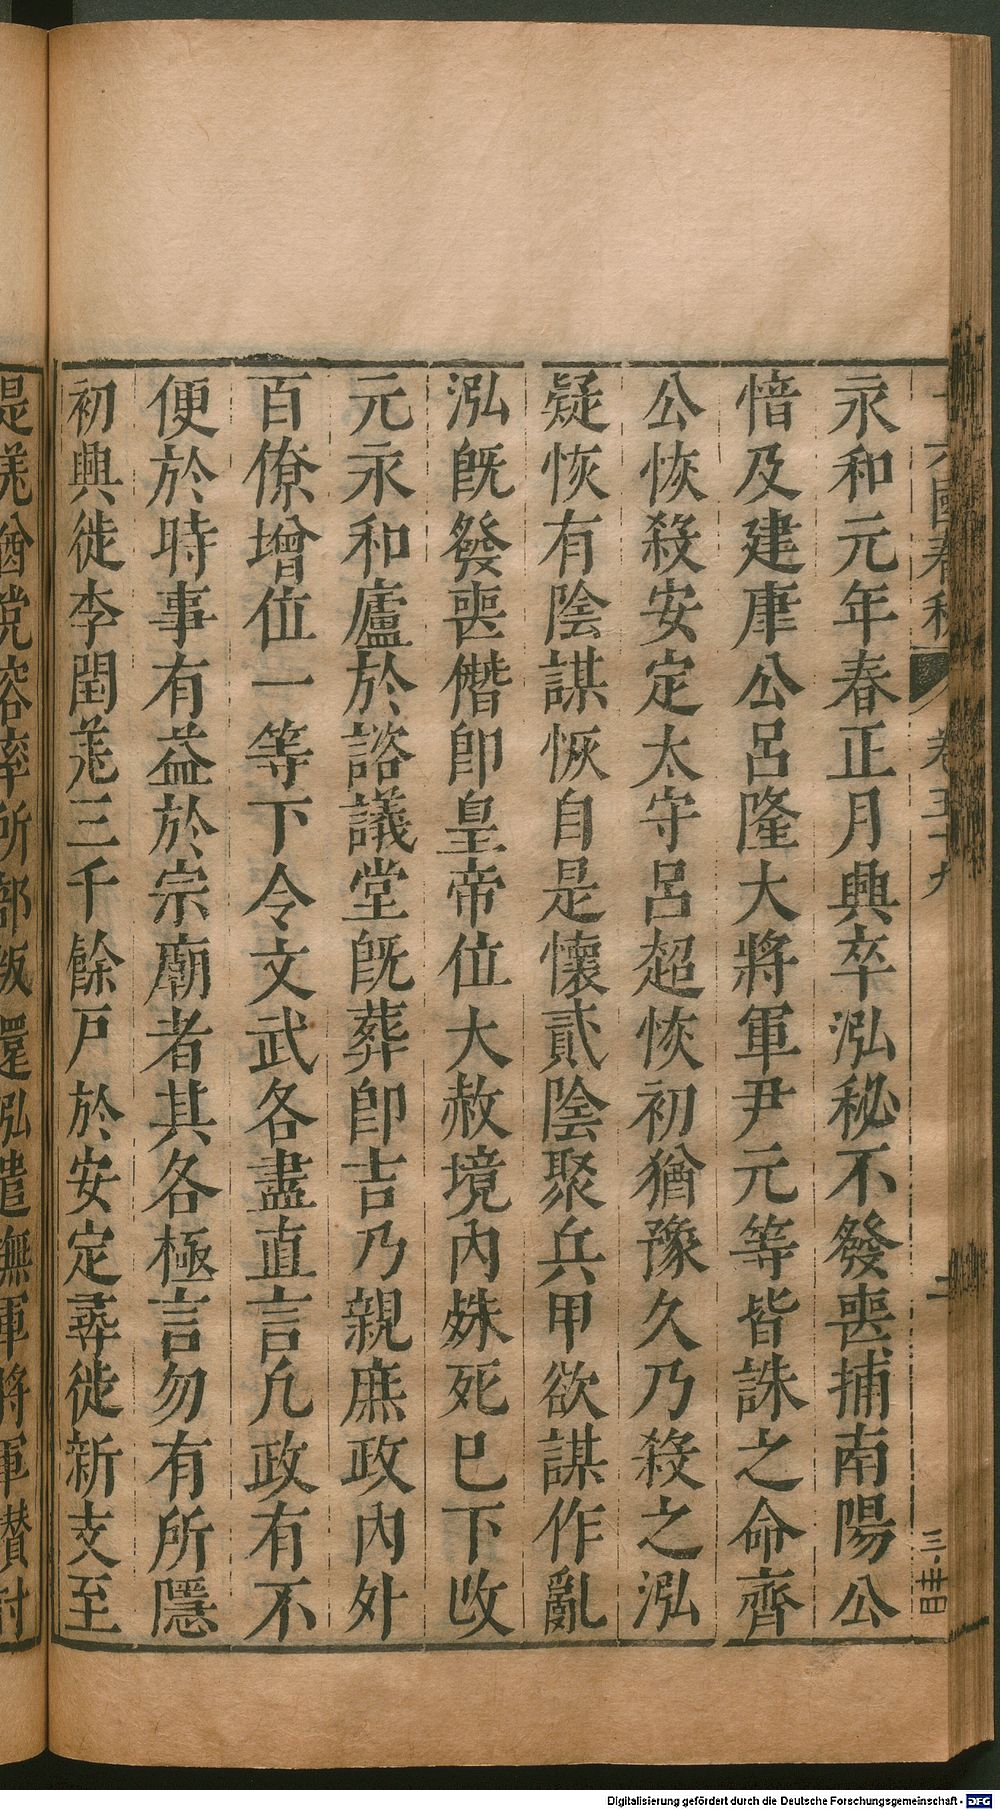 十六國春秋 卷五十九 二
永和元年春正月興卒泓秘不發喪捕南陽公
愔及建康公呂隆大將軍尹元等皆誅之命齊
公恢殺安定太守呂超恢初猶豫久乃殺之泓
疑恢有陰謀恢自是懷貳陰聚兵甲欲謀作亂
泓旣發喪僭卽皇帝位大赦境內殊死巳下改
元永和廬於諮議堂旣葬卽吉乃親庶政內外
百僚增位一等下令文武各盡直言凢政有不
便於時事有益於宗廟者其各極言勿有所隱
初興徙李閏羌三千餘戸於安定尋徙新支至
是羌酋党容率所部叛還泓遣撫軍將軍贊討
Digitalisierung gefördert durch die Deutsche Forschungsgemeinschaft - DFG